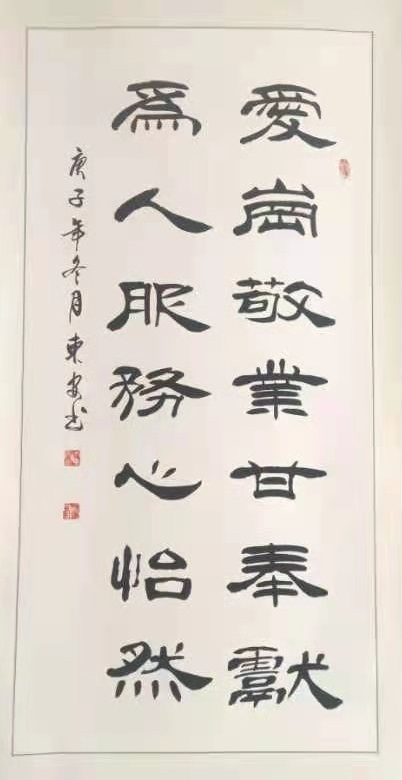 愛崗敬業甘奉獻
爲人服務心怡然
庚子年冬月東安书